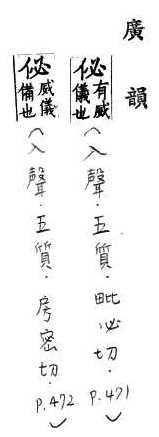 廣韻
佖有威儀也（入聲．五質．毗必切．P.471）
佖威儀備也（入聲．五質．房密切．P.472）